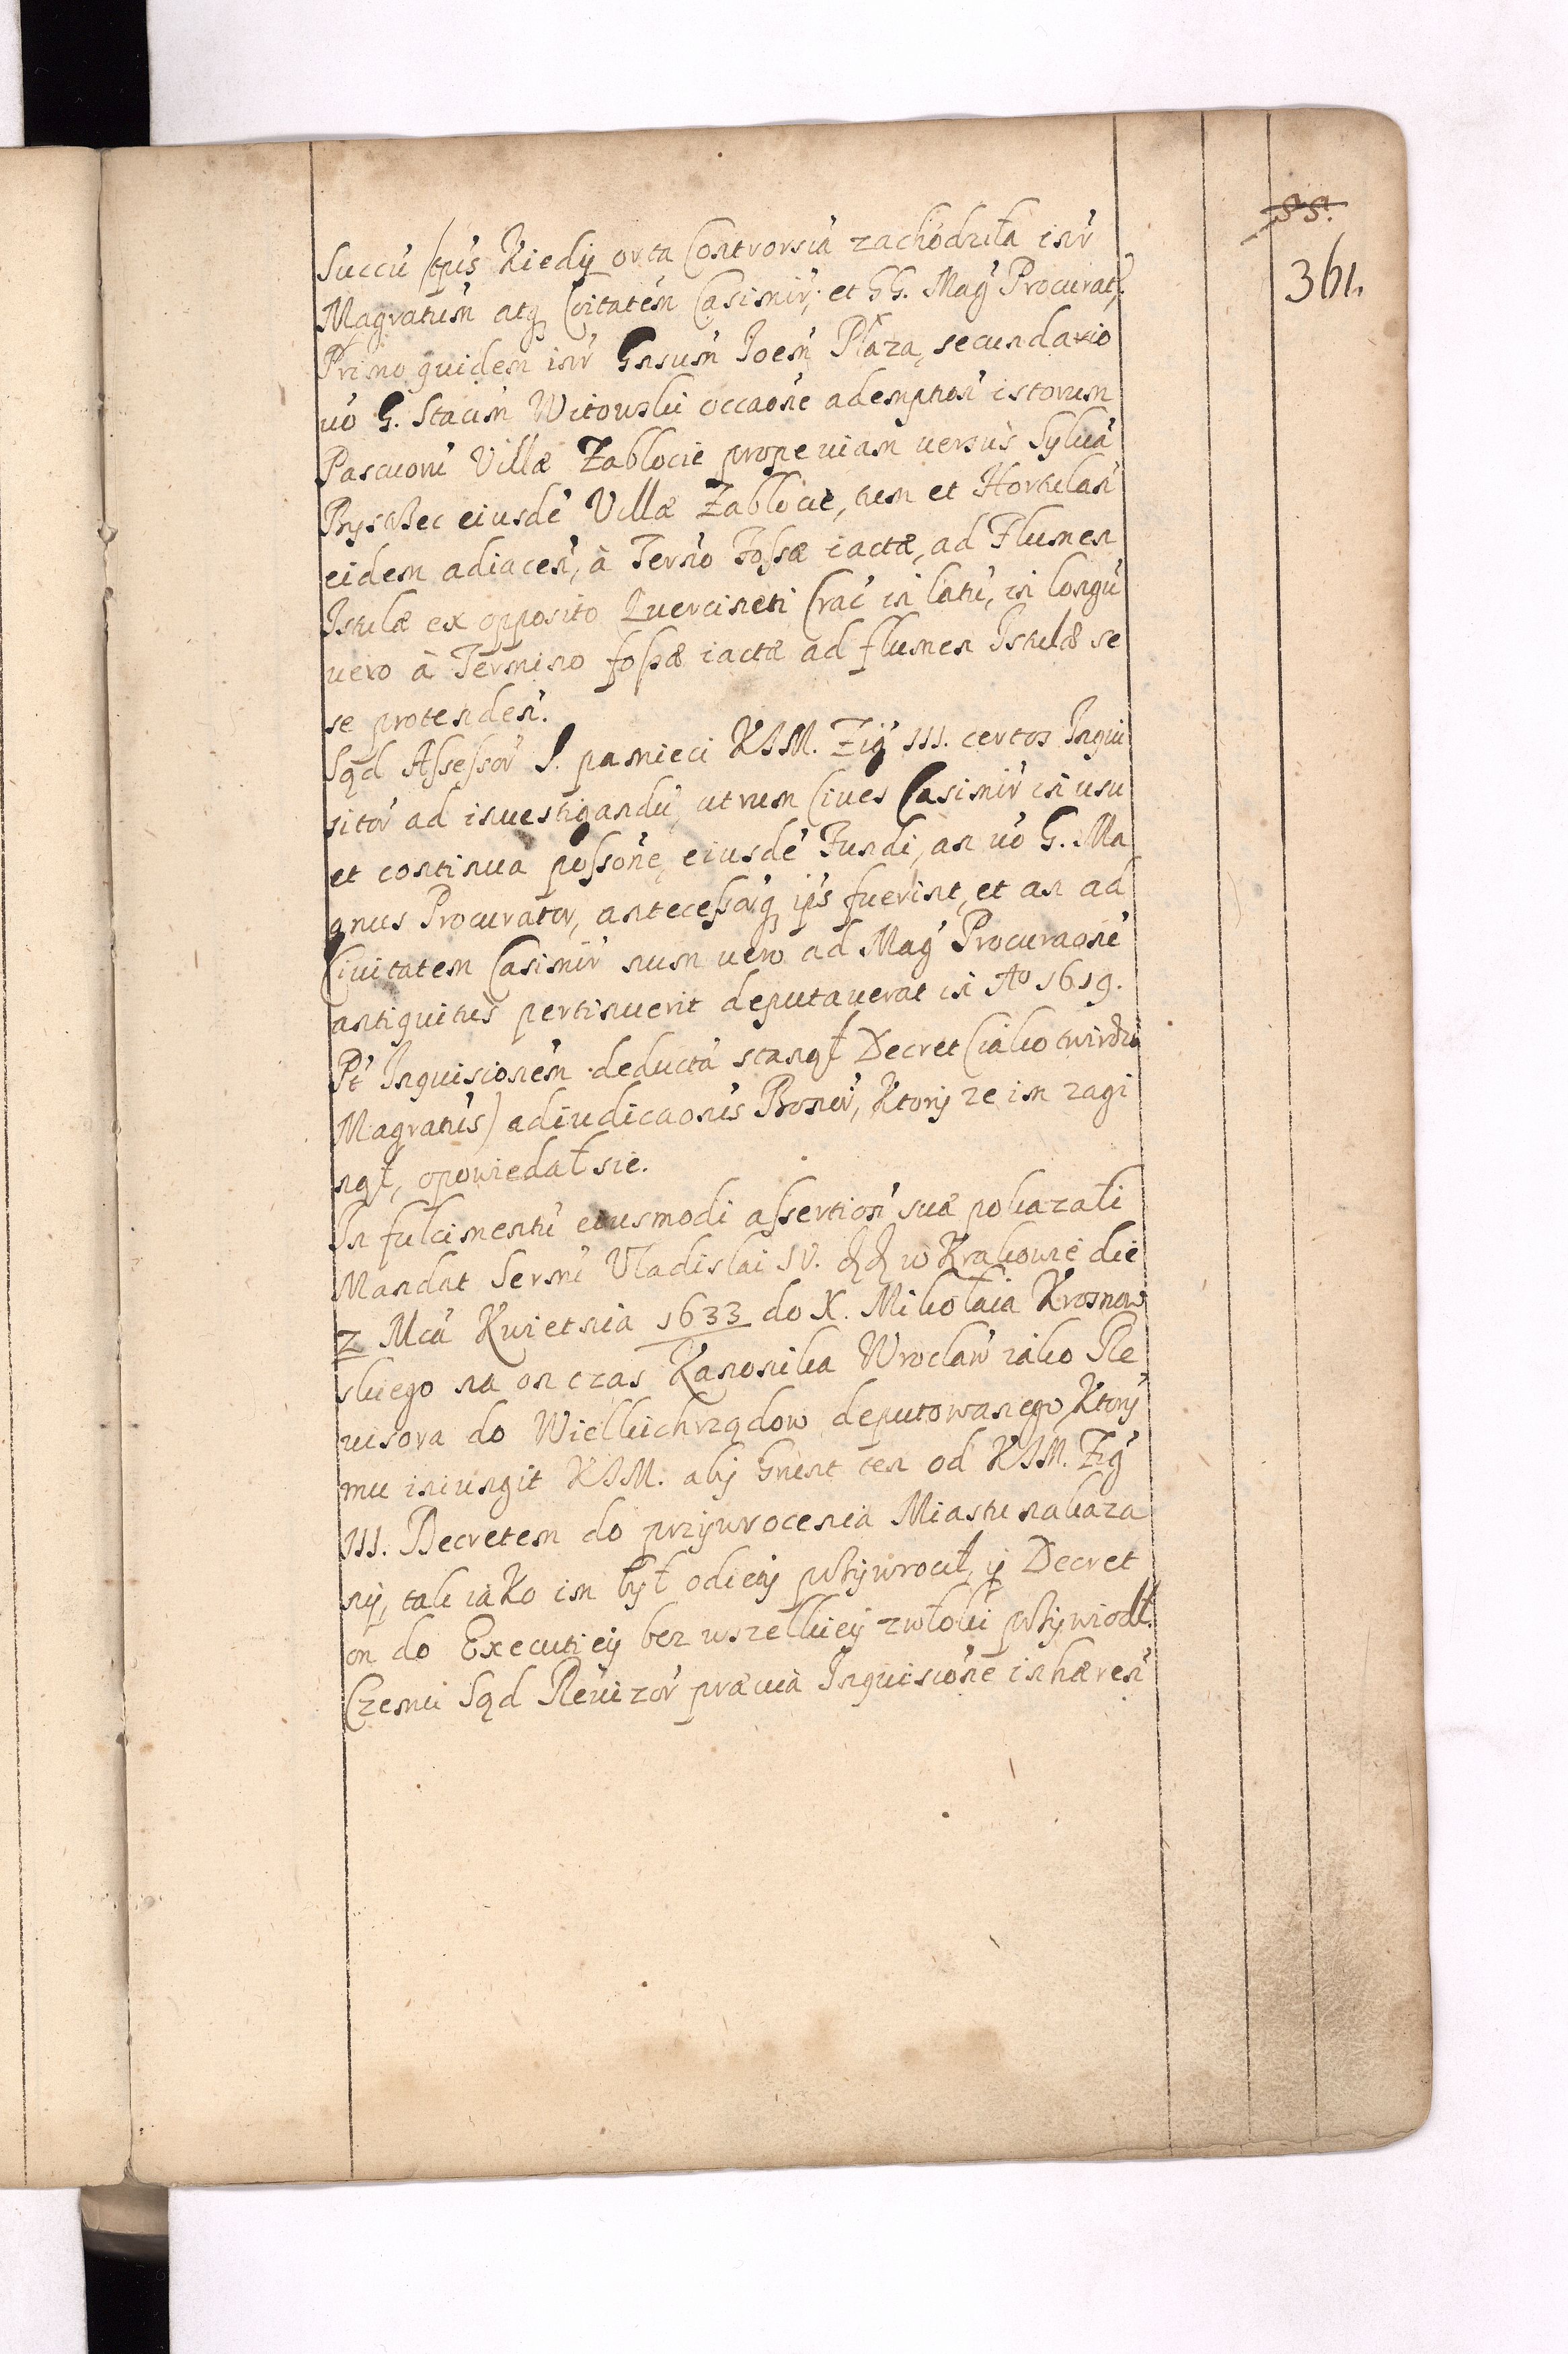 55.
361.
Succū tp̄is Kiedy orta Controrsia zachodziła int̄
Magratum̄ atq̨ Citatem̄ Casimir̄, et GG. Mag̃ Procurat̄,
Primo quidem int̄ Gnsum̄ Joem̄ Płaza, secundario
uō G. Stacim̄ Witowski occaōne ademption̄ istorum
Pascuorū Villæ Zablocie prope uiam uersùs Syluā
Rysitec eiusdē Villæ Zablocie, tum et Hortulan̄
eidem adiacen̄, à Ter̄no Fossæ iactæ, ad Flumen
Istulæ ex opposito Quercineti Crac̄ in latū, in longū
uero à Termino fossæ iactæ ad flumen Istulæ se
se protenden̄.
Sąd Assessor̄ S. pamieci KJM. Zig̃ III. certos Inqui
sitor̄ ad inuestigandū, utrum Ciues Casimir̄ in usu
et continua possōne, eiusdē Fundi, an uō G. Ma
gnus Procurator, antecessōrq̨ ip̄s fuerint, et an ad
Ciuitatem Casimir̄ num uero ad Mag̃ Procuraōnē
antiquitùs pertinuerit deputauerat in Ao 1619.
Pt̄ Inquisicionem̄ deductā stanął Decret (iako twirdzi
Magratus) adiudicaōnis Bonor̄, Ktory ze im zagi
nął, opowiedał sie.
In fulcimentū eiusmodi assertion̄ suæ pokazali
Mandat Serm̄i Vladislai IV. w Krakowie die
2 Mca Kwietnia 1633 do X. Mikołaia Krosnow
skiego na on czas Kanonika Wrocław̄ iako Re
uisora do Wielkichrządow deputowanego, Ktorỹ
mu iniungit KJM. aby Grūnt ten od KJM. Zig̃
III. Decretem do przywrocenia Miastu nakaza
ny, tak iako im był odięty przywrocił, y Decret
on do Executiey bez wszelkiey zwłoki przywiodł.
Czemu Sąd Reuizor̄ præuia Inquisiciōne inhæren̄